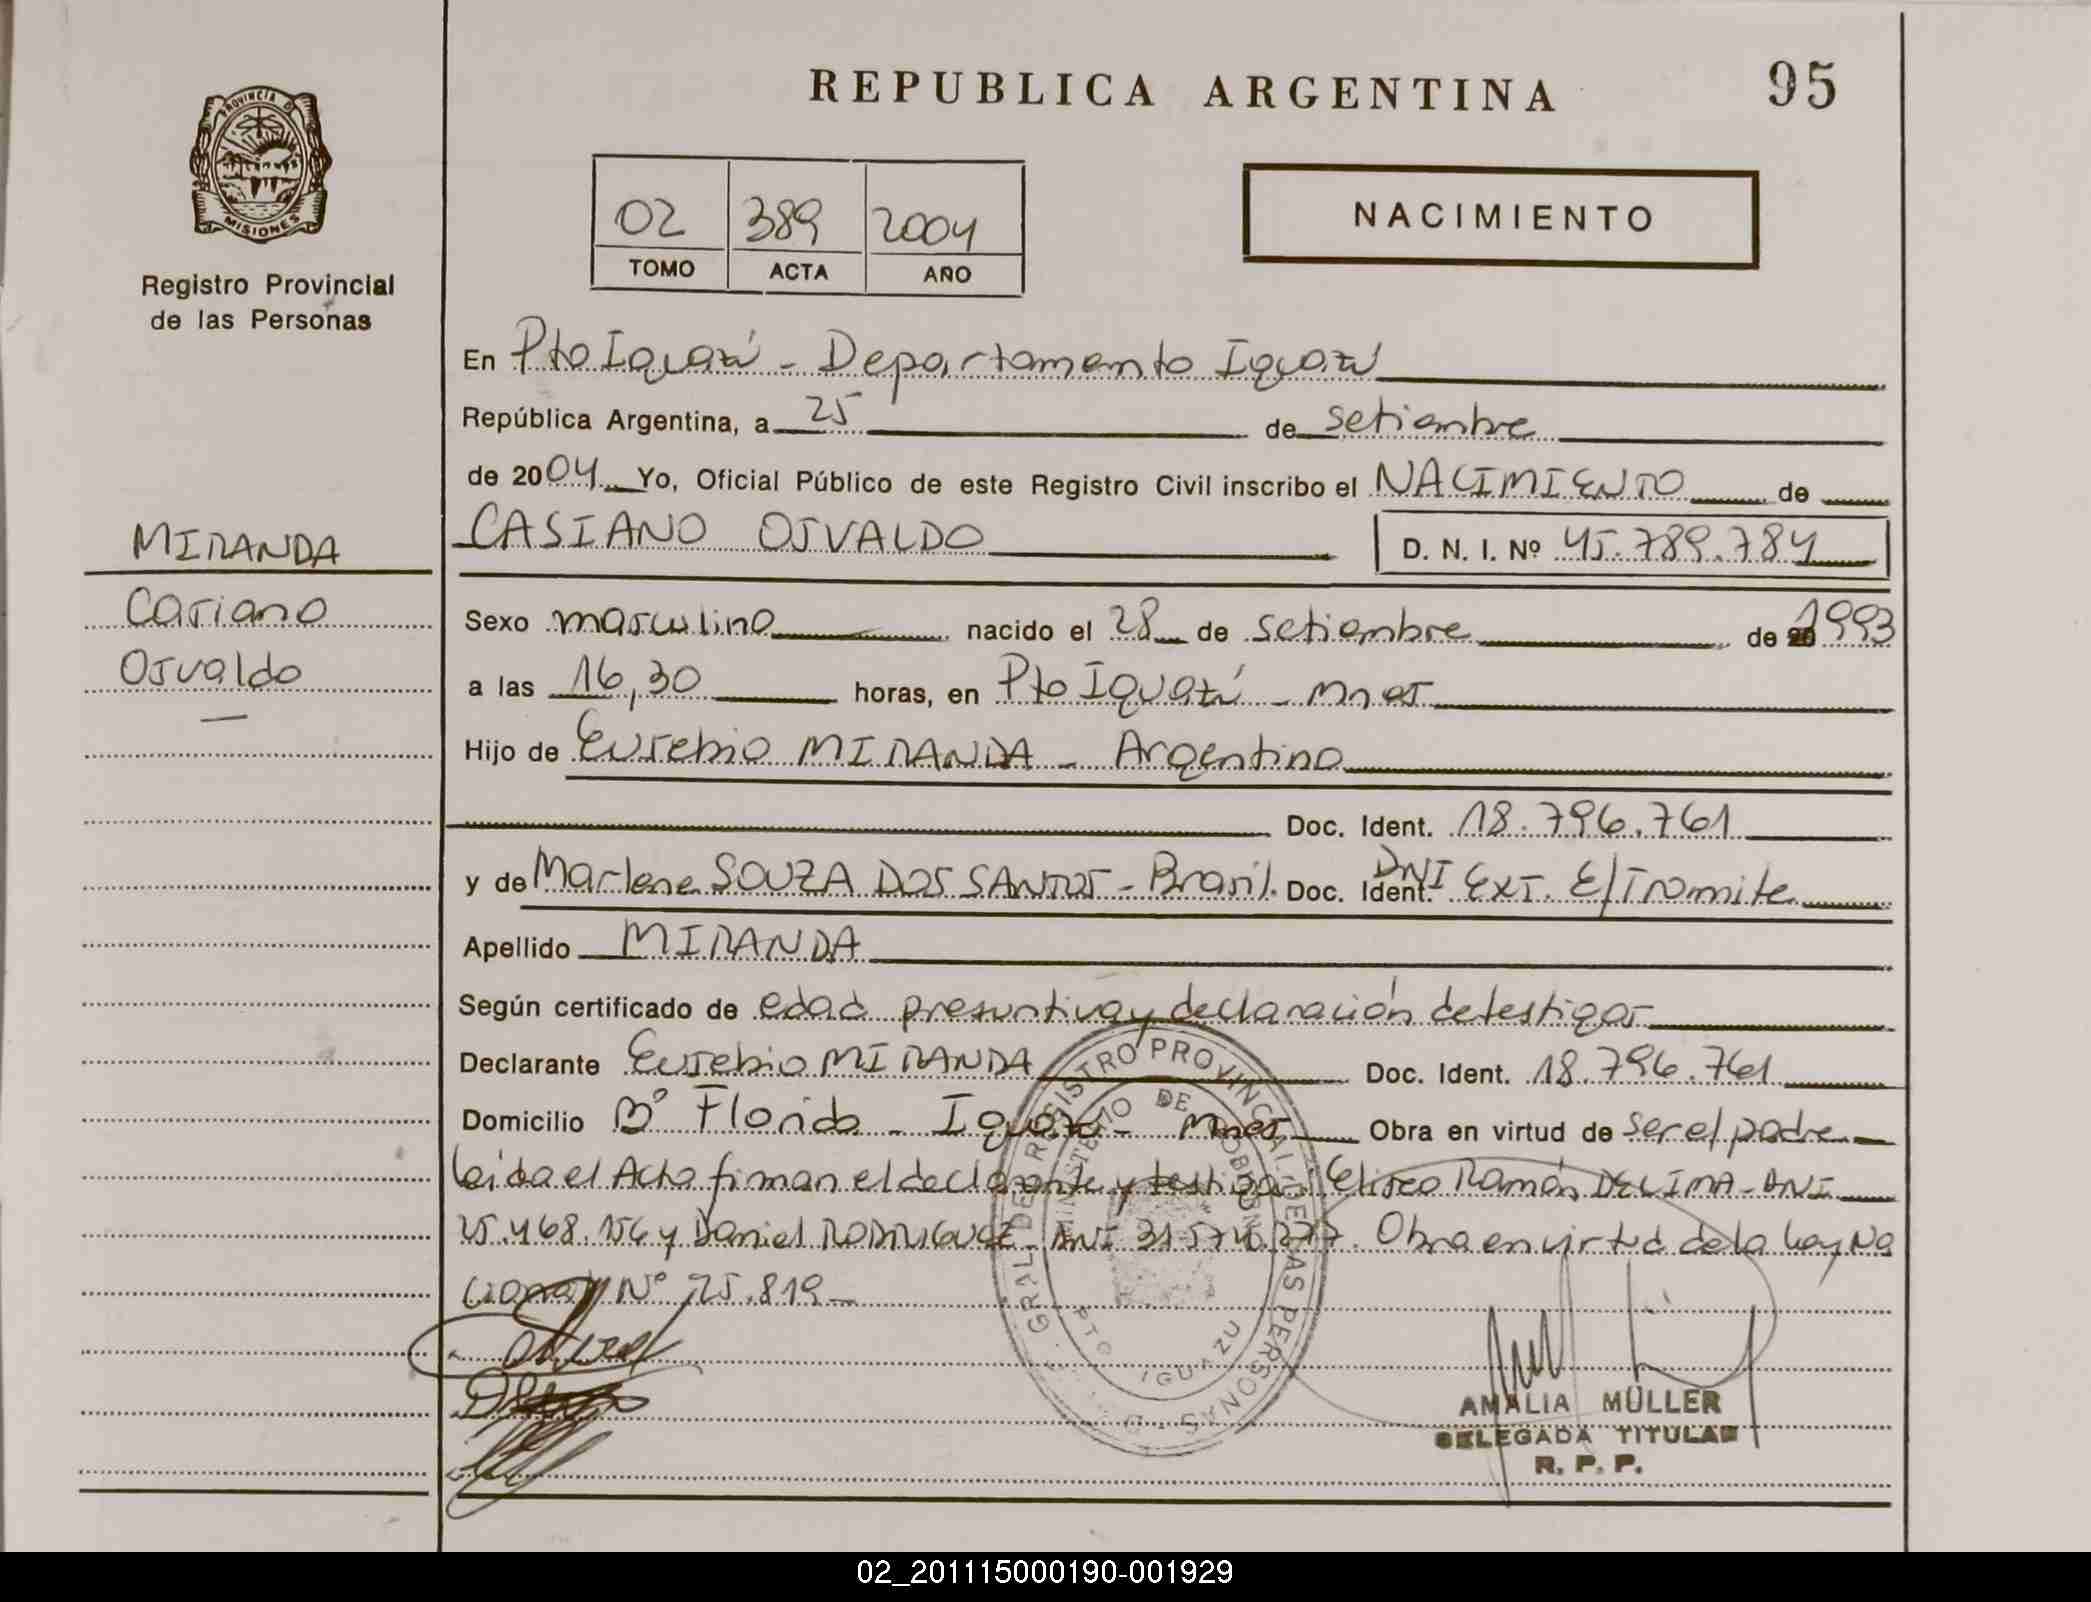 REPUBLICA ARGENTINA
95
PROVINCIA D
MISIONES
Registro Provincial
de las Personas
02 389 2004
TOMO ACTA AÑO
NACIMIENTO
En Pto Iguazú - Departamento Iguazú
República Argentina, a 25 de setiembre
de 2004 Yo, Oficial Público de este Registro Civil inscribo el NACIMIENTO de
CASIANO OSVALDO D. N. I. Nº 45.789.784
MIRANDA
Casiano
Osvaldo
Sexo masculino nacido el 28 de setiembre de 1993
a las 16,30 horas, en Pto Iguazú - Mnes
Hijo de Eusebio MIRANDA - Argentino
Doc. Ident. 18.796.761
y de Marlene SOUZA DOS SANTOS - Brasil. Doc. Ident. DNI EXT. E/Tramite
Apellido MIRANDA
Según certificado de edad presuntiva y declaración de testigos
Declarante Eusebio MIRANDA Doc. Ident. 18.796.761
Domicilio Bº Florida - Iguazú - Mnes Obra en virtud de ser el padre
Leída el Acta firman el declarante y testigos Eliseo Ramón DE LIMA - DNI
25.468.156 y Daniel RODRIGUEZ DNI 31.574.277. Obra en virtud de la Ley Na
cional Nº 25.819 -
GRAL DE REGISTRO PROVINCIAL DE LAS PERSONAS
MINISTERIO DE GOBIERNO
PTO IGUAZU
AMALIA MÜLLER
DELEGADA TITULAR
R. P. P.
02_201115000190-001929